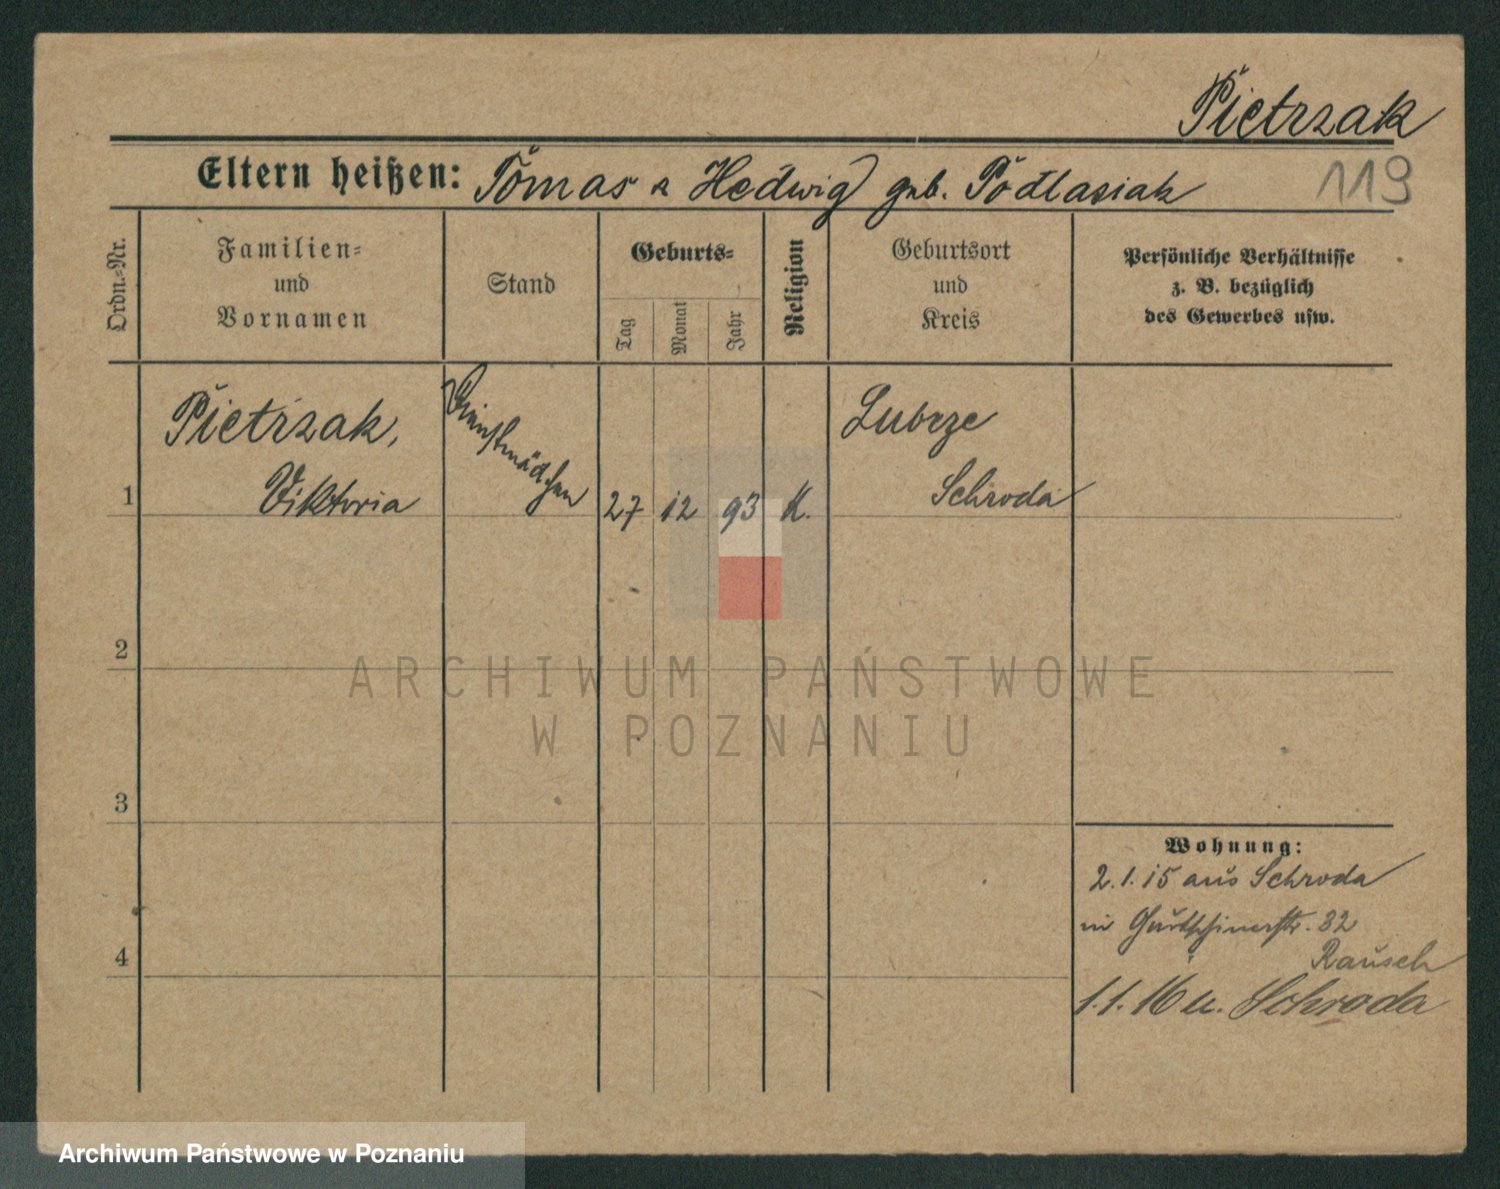 Pietrzak
Eltern heißen: Tomas u Hedwig geb. Podlasiak
119
Ordn.-Nr.
Familien-
und
Vornamen
Stand
Geburts-
Tag
Monat
Jahr
Religion
Geburtsort
und
Kreis
Persönliche Verhältnisse
z. B. bezüglich
des Gewerbes usw.
1
Pietrzak,
Viktoria
Dienstmädchen
27
12
93
K.
Lubrze
Schroda
2
3
4
ARCHIWUM PAŃSTWOWE
W POZNANIU
Wohnung:
2.1.15 aus Schroda
in Gurtschinerstr. 32
Rausch
1.1.16 n. Schroda
Archiwum Państwowe w Poznaniu